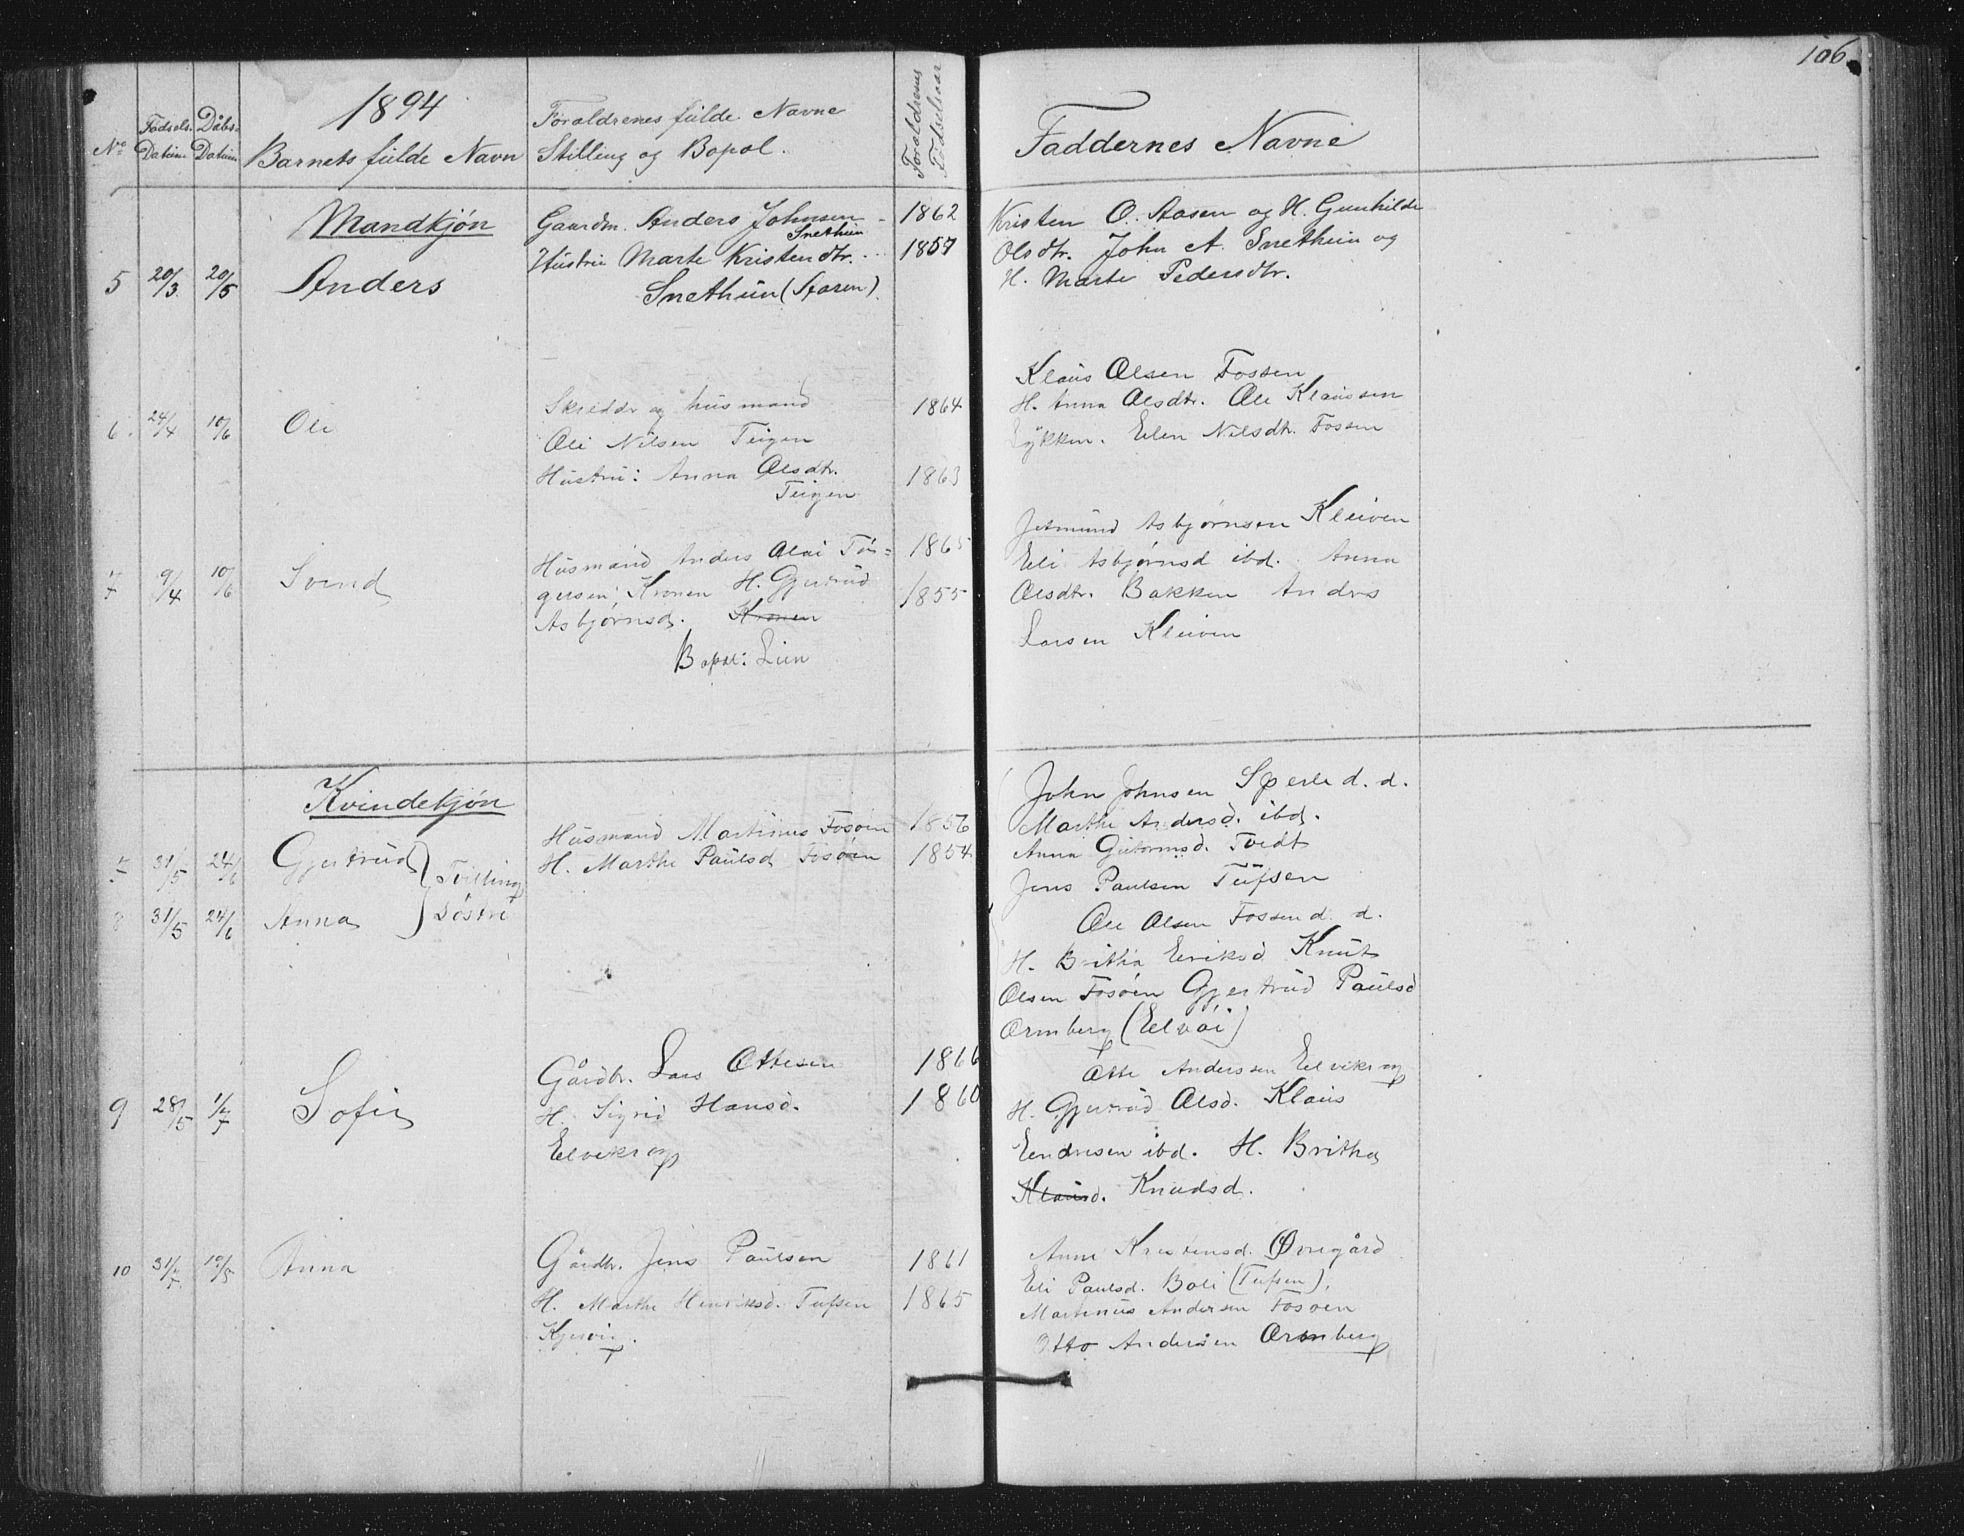 106
1894
No
Fødsels-
Datum
Dåbs-
Datum
Barnets fulde Navn
Forældrenes fulde Navne
Stilling og Bopæl.
Forældrenes
Fødselsaar
Faddernes Navne
Mandkjøn
5 20/3 20/5 Anders
Gaardm. Anders Johnsen
Snethun
Hustru Marte Kristendtr.
Snethun (Aasen).
1862
1857
Kristen O. Aasen og H. Gunhilde
Olsdtr. John A. Snethun og
H. Marte Pedersdtr.
6. 24/4 10/6 Ole
Skrædder og husmand
Ole Nilsen Teigen
Hustru: Anna Olsdtr.
Teigen
1864
1863
Klaus Olsen Fossen
H. Anna Olsdtr. Ole Klaussen
Lykken. Elen Nilsdtr. Fossen
7 9/4 10/6 Svend
Husmand Anders Olai Tør-
gersen, Kronen H. Gjertrud
Asbjørnsd. Kronen
Bopæl: Lien
1865
1855
Jetmund Asbjørnsen Kleiven
Eli Asbjørnsd ibd. Anna
Olsdtr. Bakken Anders
Larsen Kleiven
Kvindekjøn
7 31/5 24/6 Gjertrud } Tvilling
8 31/5 24/6 Anna } Søstre
Husmand Martinus Fosøen
H. Marthe Paulsd Fosøen
1856
1854
John Johnsen Sperle d. d.
Marthe Andersd. ibd.
Anna Gutormsd. Tvedt
Jens Paulsen Tufsen
Ole Olsen Fossen d. d.
H. Britha Eriksd Knut
Olsen Fosøen Gjertrud Paulsd
Ormberg (Elvøi)
9 28/5 1/7 Sofie
Gårdbr. Lars Ottesen
H. Sigrid Hansd.
Elvikrog
1866
1860
Otte Anderssen Elvikrog
H. Gjertrud Olsd. Klaus
Endresen ibd. H. Britha
Klausd. Knudsd.
10 31/5 Anna
Gårdbr. Jens Paulsen
H. Marthe Henriksd. Tufsen
1861
1865
Anne Kristensd. Øvregård
Eli Paulsd. Boli (Tufsen).
Martinus Andersen Fosøen
Otto Andersen Ormberg